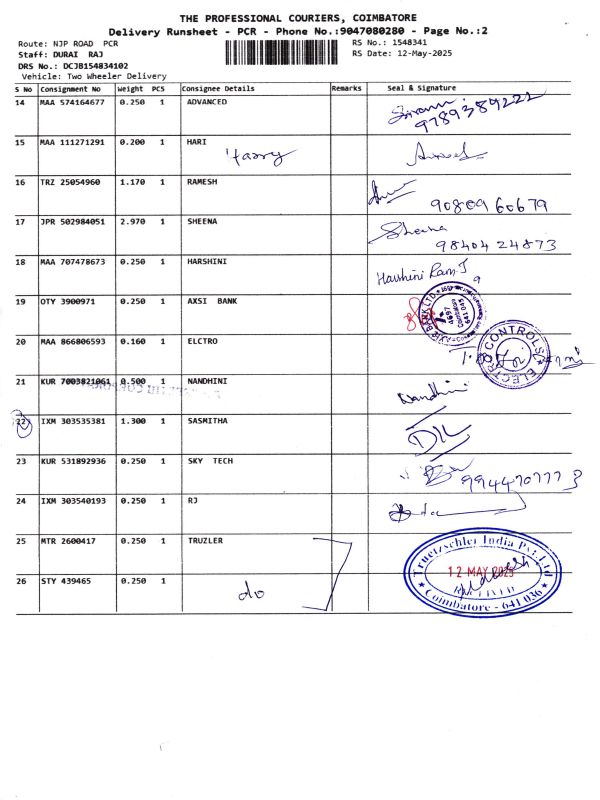 THE PROFESSIONAL COURIERS, COIMBATORE
Delivery Runsheet - PCR - Phone No.:9047080280 - Page No.:2
Route: NJP ROAD PCR
RS No.: 1548341
Staff: DURAI RAJ
RS Date: 12-May-2025
DRS No.: DCJB154834102
Vehicle: Two Wheeler Delivery
S No Consignment No Weight PCS Consignee Details Remarks Seal & Signature
14 MAA 574164677 0.250 1 ADVANCED
9789389221
15 MAA 111271291 0.200 1 HARI
Harry
16 TRZ 25054960 1.170 1 RAMESH
9080960679
17 JPR 502984051 2.970 1 SHEENA Sheena
98404 24873
18 MAA 707478673 0.250 1 HARSHINI Harshini Ram.J
19 OTY 3900971 0.250 1 AXSI BANK
20 MAA 866806593 0.160 1 ELCTRO
ELECTRO CONTROLS
21 KUR 7003821061 0.500 1 NANDHINI Nandhini
22 IXM 303535381 1.300 1 SASMITHA
23 KUR 531892936 0.250 1 SKY TECH
9944707773
24 IXM 303540193 0.250 1 RJ
25 MTR 2600417 0.250 1 TRUZLER
Truetzschler India Pvt. Ltd
12 MAY 2025
RECEIVED
Coimbatore - 641 036
26 STY 439465 0.250 1
do